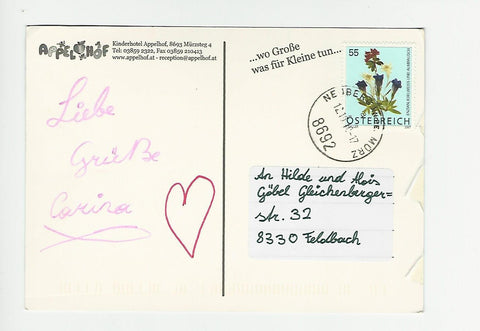 APPELHOF
Kinderhotel Appelhof, 8693 Mürzsteg 4
Tel: 03859 2322, Fax 03859 210413
www.appelhof.at - reception@appelhof.at
...wo Große
was für Kleine tun...
55
ÖSTERREICH
8692
MÜRZ
Liebe
Grüße
Carina
An Hilde und Alois
Göbel Gleichenberger=
str. 32
8330 Feldbach